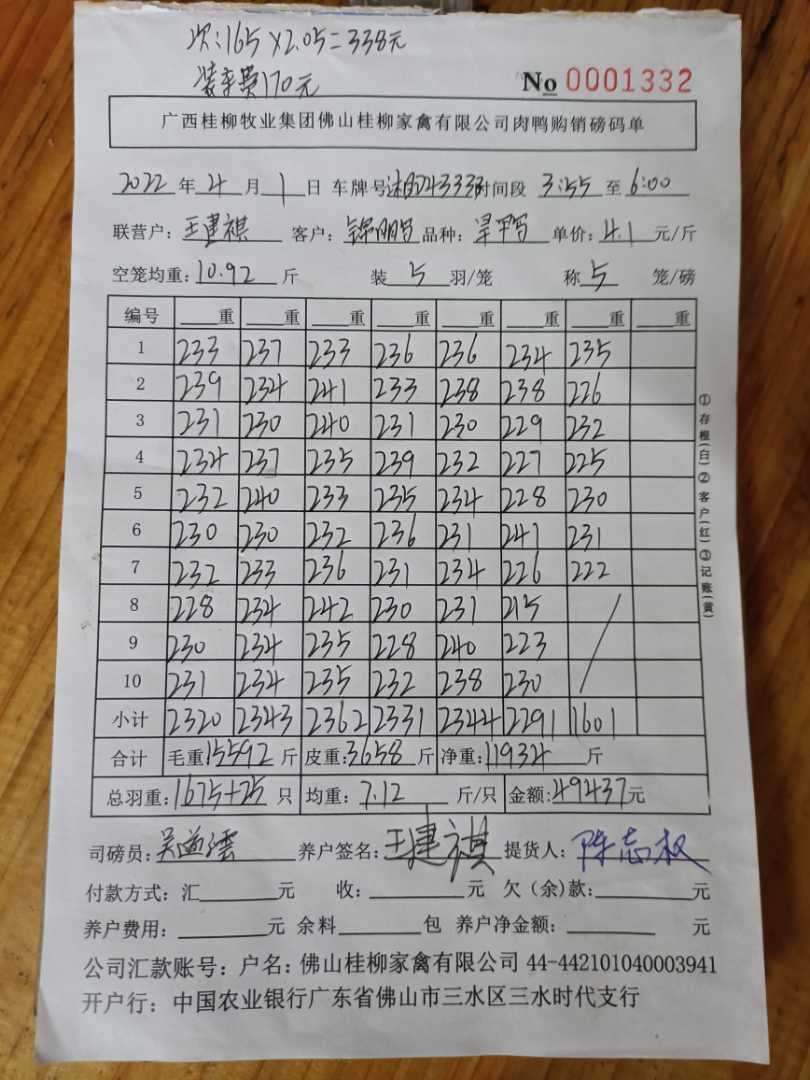 次:165×2.05=338元
装车费170元
No 0001332
广西桂柳牧业集团佛山桂柳家禽有限公司肉鸭购销磅码单
2022 年 4 月 1 日 车牌号 时间段 3:55 至 6:00
联营户: 王建祺 客户: 品种: 单价: 4.1 元/斤
空笼均重: 10.92 斤 装 5 羽/笼 称 5 笼/磅
编号 重 重 重 重 重 重 重 重
1 233 237 233 236 236 234 235
2 239 234 241 233 238 238 226
3 231 230 240 231 230 229 232
4 234 237 235 239 232 227 225
5 232 240 233 235 234 228 230
6 230 230 232 236 231 241 231
7 232 233 236 231 234 226 222
8 228 234 242 230 231 215
9 230 234 235 228 240 223
10 231 234 235 232 238 230
小计 2320 2343 2362 2331 2344 2291 1601
合计 毛重15592 斤 皮重:3658 斤 净重:11934 斤
总羽重:1675+25 只 均重: 7.12 斤/只 金额:49437元
司磅员: 养户签名: 王建祺 提货人: 陈志权
付款方式: 汇 元 收: 元 欠(余)款: 元
养户费用: 元 余料 包 养户净金额: 元
公司汇款账号: 户名: 佛山桂柳家禽有限公司 44-442101040003941
开户行: 中国农业银行广东省佛山市三水区三水时代支行
①存根(白)②客户(红)③记账(黄)